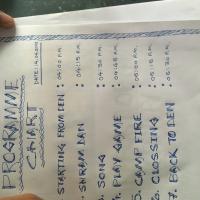 PROGRAMME
CHART
DATE: 14.04.2019
1. STARTING FROM DEN : 04:00 P.M.
2. SHRAM DAN : 04:15 P.M.
3. SONG : 04:30 P.M.
4. PLAY GAME : 04:45 P.M.
5. CAMP FIRE : 05:00 P.M.
6. CLOSSING : 05:15 P.M.
7. BACK TO DEN : 05:30 P.M.